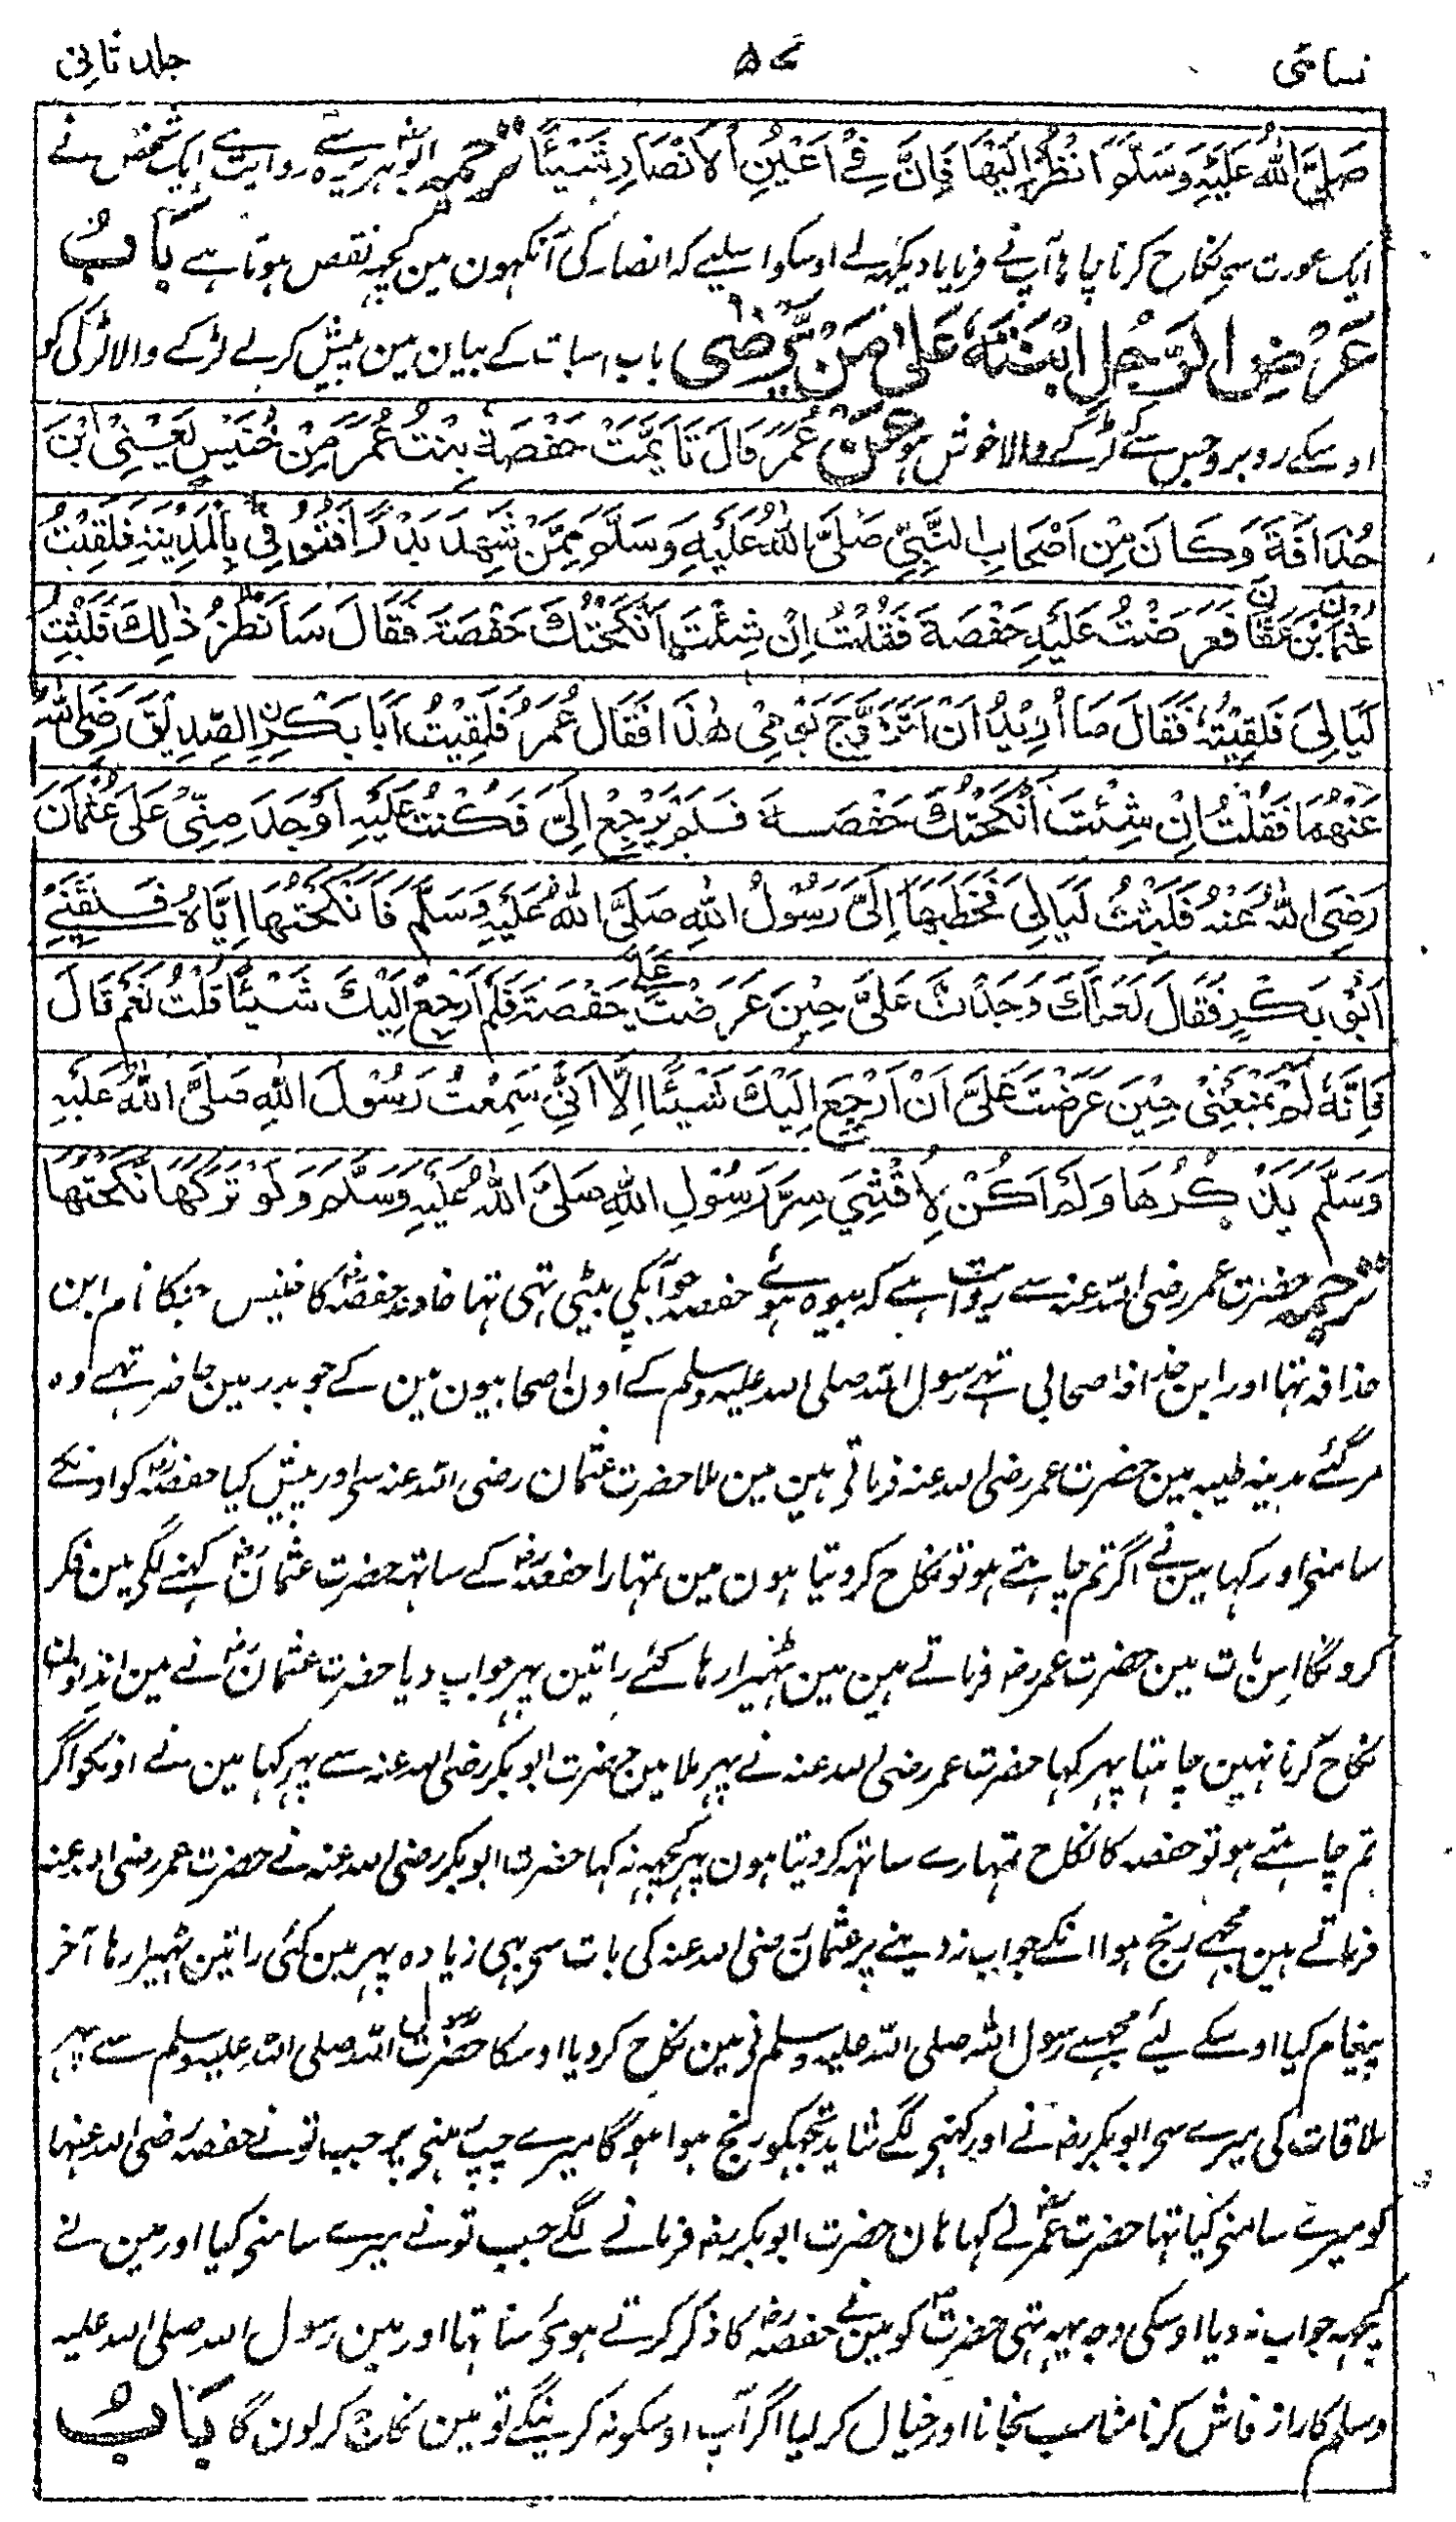 نسائی ۵۷ جلد ثانی
صَلَّی اللّٰہُ عَلَیْہِ وَسَلَّمَ اُنْظُرْ اِلَیْھَا فَاِنَّ فِیْ اَعْیُنِ الْاَنْصَارِ شَیْئًا ترجمہ ابوہریرہ سے روایت ہے ایک شخص نے
ایک عورت سی نکاح کرنا چاہا آپ نے فرمایا دیکہہ لے اوسکو اسلیے کہ انصار کی آنکہون مین کچہہ نقص ہوتا ہے بَابُ
عَرْضِ الرَّجُلِ ابْنَتَہٗ عَلٰی مَنْ یَّرْضٰی باب اسبات کے بیان مین پیش کرلے لڑکے والا لڑکی کو
اوسکے روبرو جس سے لڑکے والا خوش ہو عَنْ عُمَرَ قَالَ تَاَیَّمَتْ حَفْصَۃُ بِنْتُ عُمَرَ مِنْ خُنَیْسٍ یَعْنِیْ ابْنَ
حُذَافَۃَ وَکَانَ مِنْ اَصْحَابِ النَّبِیِّ صَلَّی اللّٰہُ عَلَیْہِ وَسَلَّمَ مِمَّنْ شَھِدَ بَدْرًا فَتُوُفِّیَ بِالْمَدِیْنَۃِ فَلَقِیْتُ
عُثْمَانَ بْنَ عَفَّانَ فَعَرَضْتُ عَلَیْہِ حَفْصَۃَ فَقُلْتُ اِنْ شِئْتَ اَنْکَحْتُکَ حَفْصَۃَ فَقَالَ سَاَنْظُرُ ذٰلِکَ فَلَبِثْتُ
لَیَالِیَ فَلَقِیْتُہٗ فَقَالَ مَا اُرِیْدُ اَنْ اَتَزَوَّجَ یَوْمِیْ ھٰذَا فَقَالَ عُمَرُ فَلَقِیْتُ اَبَا بَکْرِنِ الصِّدِیْقَ رَضِیَ اللّٰہُ
عَنْھُمَا فَقُلْتُ اِنْ شِئْتَ اَنْکَحْتُکَ حَفْصَۃَ فَلَمْ یَرْجِعْ اِلَیَّ فَکُنْتُ عَلَیْہِ اَوْجَدَ مِنِّیْ عَلٰی عُثْمَانَ
رَضِیَ اللّٰہُ عَنْہُ فَلَبِثْتُ لَیَالِیَ فَخَطَبَھَا اِلَیَّ رَسُوْلُ اللّٰہِ صَلَّی اللّٰہُ عَلَیْہِ وَسَلَّمَ فَاَنْکَحْتُھَا اِیَّاہُ فَلَقِیَنِیْ
اَبُوْ بَکْرٍ فَقَالَ لَعَلَّکَ وَجَدْتَ عَلَیَّ حِیْنَ عَرَضْتَ عَلَیَّ حَفْصَۃَ فَلَمْ اَرْجِعْ اِلَیْکَ شَیْئًا قُلْتُ نَعَمْ قَالَ
فَاِنَّہٗ لَمْ یَمْنَعْنِیْ حِیْنَ عَرَضْتَ عَلَیَّ اَنْ اَرْجِعَ اِلَیْکَ شَیْئًا اِلَّا اَنِّیْ سَمِعْتُ رَسُوْلَ اللّٰہِ صَلَّی اللّٰہُ عَلَیْہِ
وَسَلَّمَ یَذْکُرُھَا وَلَمْ اَکُنْ لِاُفْشِیَ سِرَّ رَسُوْلِ اللّٰہِ صَلَّی اللّٰہُ عَلَیْہِ وَسَلَّمَ وَلَوْ تَرَکَھَا نَکَحْتُھَا
ترجمہ حضرت عمر رضی اللہ عنہ سے روایت ہے کہ بیوہ ہوئے حفصہ جو آپکی بیٹی تہی تہا خاوند حفصہؓ کا خنیس جنکا نام ابن
حذافہ تہا اور ابن حذافہ صحابی تہے رسول اللہ صلی اللہ علیہ وسلم کے اون اصحابیون مین کے جو بدر مین حاضر تہے وہ
مر گئے مدینہ طیبہ مین حضرت عمر رضی اللہ عنہ فرماتی ہین مین ملا حضرت عثمان رضی اللہ عنہ سی اور پیش کیا حفصہؓ کو اونکے
سامنی اور کہا مین نے اگر تم چاہتے ہو تو نکاح کردیتا ہون مین تمہارا حفصہؓ کے ساتہہ حضرت عثمانؓ کہنے لگی مین فکر
کرونگا اس بات مین حضرت عمرؓ فرماتے ہین مین ٹہیرا رہا کئے راتین پہر جواب دیا حضرت عثمانؓ نے مین اندنون
نکاح کرنا نہین چاہتا پہر کہا حضرت عمر رضی اللہ عنہ نے پہر ملا مین حضرت ابوبکر رضی اللہ عنہ سے پہر کہا مین نے اونکو اگر
تم چاہتے ہو تو حفصہ کا نکاح تمہارے ساتہہ کردیتا ہون پہر کچہہ نہ کہا حضرت ابوبکر رضی اللہ عنہ نے حضرت عمر رضی اللہ عنہ
فرماتے ہین مجہے رنج ہوا انکے جواب نہ دینے پر عثمان رضی اللہ عنہ کی بات سی بہی زیادہ پہر مین کئی راتین ٹہیرا رہا آخر
پیغام کیا اوسکے لئے مجہسے رسول اللہ صلی اللہ علیہ وسلم نی مین نکاح کردیا اوسکا حضرت رسول اللہ صلی اللہ علیہ وسلم سے پہر
ملاقات کی میرے سی ابوبکرؓ نے اور کہنی لگے شاید تجہکو رنج ہوا ہوگا میرے چپ رہنی پر جب تونے حفصہ رضی اللہ عنہا
کو میرے سامنی کیا تہا حضرت عمرؓ نے کہا ہان حضرت ابوبکرؓ فرمانے لگے جب تونے میرے سامنی کیا اور مین نے
کچہہ جواب نہ دیا اوسکی وجہ یہہ تہی حضرتؐ کو مین نے حفصہؓ کا ذکر کرتے ہوئی سنا تہا اور مین رسول اللہ صلی اللہ علیہ
وسلم کا راز فاش کرنا مناسب نجانا اور خیال کرلیا اگر آپ اوسکو نہ کرینگے تو مین نکاح کرلون گا بَابُ